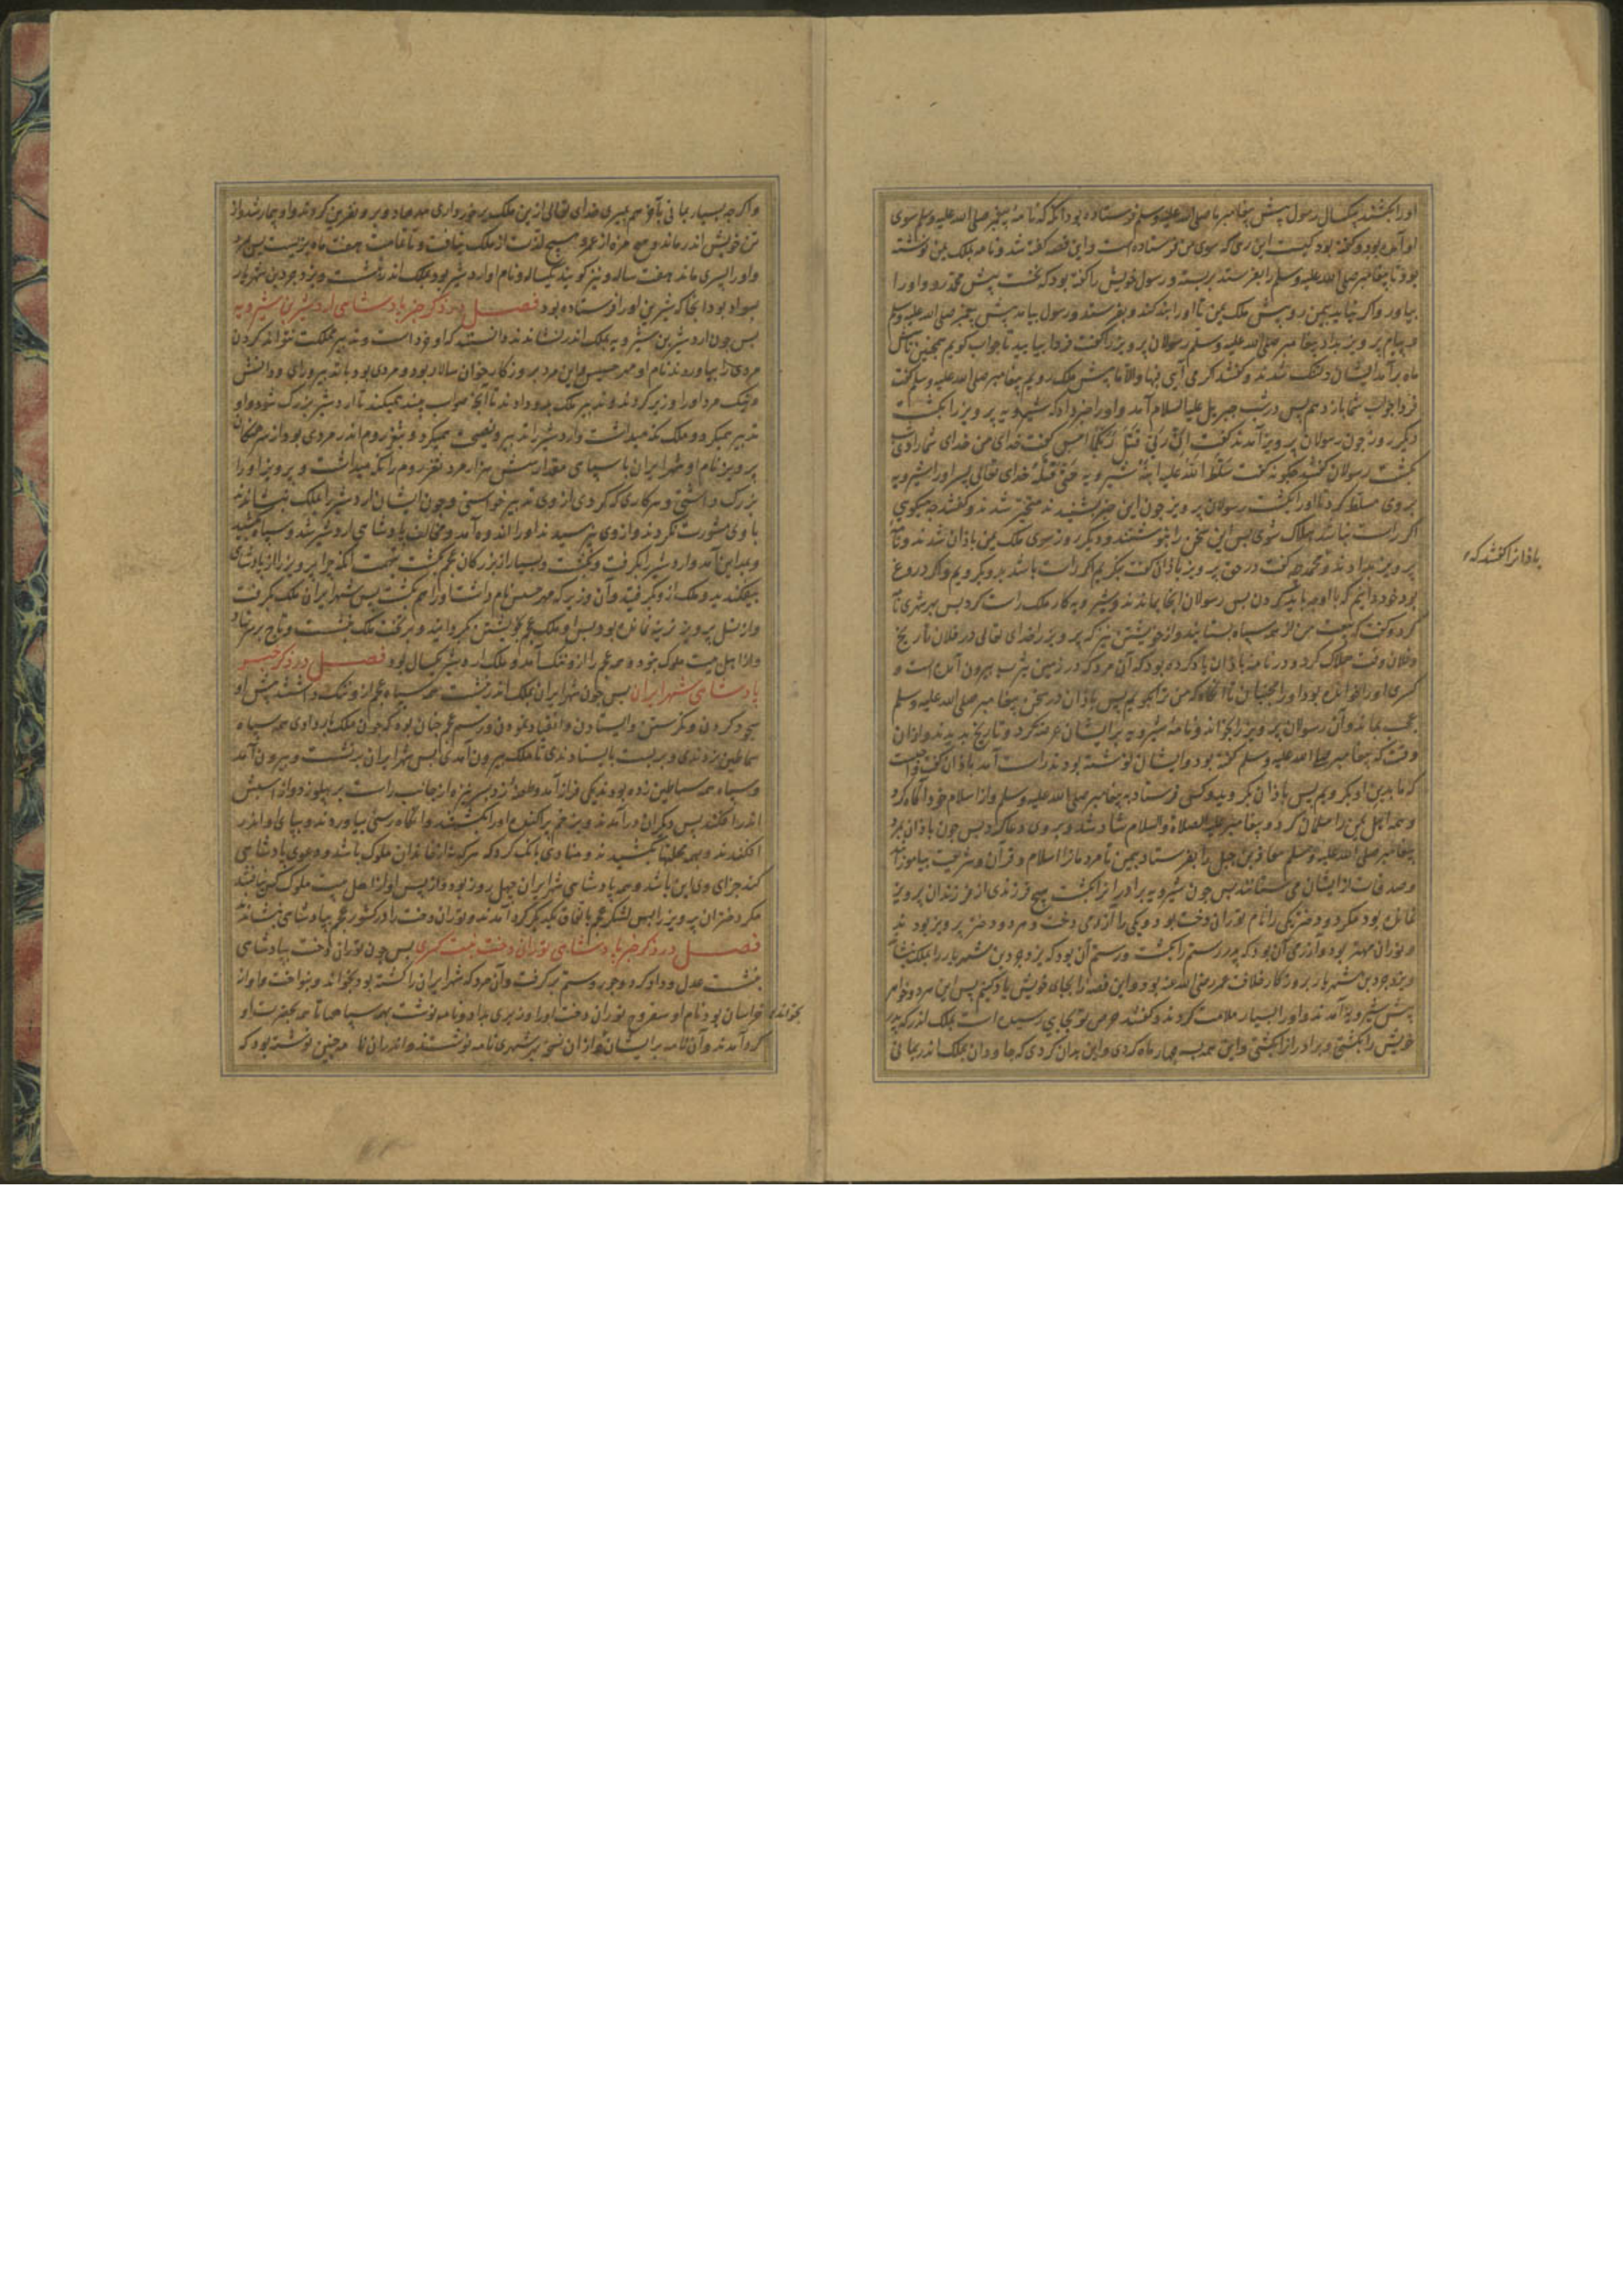 اورا بکشتند یکسال رسول پیش پیغامبر ما صلی الله علیه وسلم فرستاده بود آنکه که نامهٔ پیغمبر صلی الله علیه وسلم سوی
او آمده بود و گفته بود کیست این رهی که سوی من فرستاده است و این قصه گفته شد و نامه بملک یمن نوشته
بود تا پیغامبر صلی الله علیه وسلم را بفرستد بربسته و رسول خویش را گفته بود که نخست پیش محمد رو و او را
بیاور و اکر نیاید بیمن رو پیش ملک یمن تا او را بند کند و بفرستد و رسول بیامد پیش پیغمبر صلی الله علیه وسلم
و پیام پرویز بداد پیغامبر صلی الله علیه وسلم رسولان پرویز را گفت فردا بیایید تا جواب کویم همچنین تا شش
ماه برآمد ایشان دلتنک شدند و کفتند کر می آیی فبها والا ما پیش ملک رویم پیغامبر صلی الله علیه وسلم کفت
فردا جواب شما باز دهم پس در شب جبریل علیه السلام آمد و او را خبر داد که شیرویه پرویز را بکشت
دیکر روز چون رسولان پرویز آمدند کفت ان ربی قتل ربکما امس کفت خدای من خدای شما را دوش
بکشت رسولان کفتند چکونه کفت سلط الله علیه ابنه شیرویه حتی قتله خدای تعالی پسر او را شیرویه
بر وی مسلط کرد تا او را بکشت رسولان پرویز چون این خبر بشنیدند متحیر شدند و کفتند چه میکویی
اکر راست نباشد هلاک شوی پس این سخن را بنوشتند و دیکر روز سوی ملک یمن باذان شدند و نامهٔ
پرویز بدادند و محمد چه کفت در حق پرویز باذان کفت بنکریم اکر راست باشد بدو بکرویم و اکر دروغ
بود خود دانیم که با او چه باید کردن پس رسولان آنجا بماندند و شیرویه کار ملک راست کرد پس بهر شهری نامه
کرد و کفت که بیعت من از همه سپاه بستانید و از خویشتن نیز که پرویز را خدای تعالی در فلان تاریخ
و فلان وقت هلاک کرد و در نامهٔ باذان یاد کرده بود که آن مرد که در زمین یثرب بیرون آمده است و
کسری او را خوانده بود او را مجنبان تا آنکاه که من ترا بگویم پس باذان در سخن پیغامبر صلی الله علیه وسلم
عجب بماند و آن رسولان پرویز را بخواند و نامهٔ شیرویه بر ایشان عرضه کرد و تاریخ بدیدند و از آن
وقت که پیغامبر صلی الله علیه وسلم کفته بود و ایشان نوشته بودند راست آمد باذان کفت واجبست
که ما بدین او بکرویم پس باذان بکروید و کسی فرستاد به پیغامبر صلی الله علیه وسلم و از اسلام خود آکاه کرد
و همه اهل یمن را مسلمان کرد و پیغامبر علیه الصلاة والسلام شاد شد و بر وی دعا کرد پس چون باذان بمرد
پیغامبر صلی الله علیه وسلم معاذ بن جبل را بفرستاد بیمن تا مردمان را اسلام و قرآن و شریعت بیاموزاند
و صدقات از ایشان می ستاند پس چون شیرویه برادران را بکشت هیچ فرزندی از فرزندان پرویز
نمانده بود مکر دو دختر یکی را نام توران دخت بود و یکی را آزرمی دخت و هر دو دختر پرویز بودند
و توران مهتر بود و آزرمی آن بود که پدر رستم را بکشت و رستم آن بود که یزدجرد بن شهریار را بملک بنشاند
و یزدجرد بن شهریار بروزکار خلافت عمر رضی الله عنه بود و این قصه را بجای خویش یاد کنیم پس این هر دو خواهر
پیش شیرویه آمدند و او را بسیار ملامت کردند و کفتند حرص تو بجایی رسیده است بملک اندر که پدر
خویش را بکشتی و برادران را بکشتی و این همه بچهار ماه کردی و این بدان کردی که جاودان بملک اندر بمانی
باذان را کفتند که
و اکرچه بسیار بمانی بآخر هم بمیری خدای تعالی ازین ملک برخورداری مدهاد و برو نفرین کردند و او بیمار شد و از
تن خویش اندر ماند و هیچ مزه از عمر و هیچ لذت از ملک نیافت و تمامت هفت ماه بزیست پس بمرد
و او را پسری ماند هفت ساله و نیز کویند یکساله و نام او اردشیر بود و ملک اندر کذشت و یزدجرد بن شهریار
بسواد بود آنجا که شیرین او را فرستاده بود فصل در ذکر خبر پادشاهی اردشیر بن شیرویه
پس چون اردشیر بن شیرویه بملک اندر نشاندند دانستند که او خرد است و تدبیر مملکت نتواند کردن
مردی را بیاوردند نام او مهر حسیس و این مرد بروزکار خوان سالار بود و مردی بود با تدبیر و رای و دانش
و نیک مرد او را وزیر کردند و تدبیر ملک بدو دادند تا آنچه صواب بیند میکند تا اردشیر بزرک شود و او
تدبیر میکرد و ملک نکه میداشت و اردشیر را تدبیر و نصیحت میکرد و بثغر روم اندر مردی بود از سرهنکان
پرویز نام او شهر ایران با سپاهی مقدار شش هزار مرد ثغر روم را نکه میداشت و پرویز او را
بزرک داشتی و هر کاری که کردی از وی تدبیر خواستی و چون ایشان اردشیر را بملک بنشاندند
با وی مشورت نکردند و از وی نپرسیدند او را اندوه آمد و مخالف پادشاهی اردشیر شد و سپاه کشید
و بمداین آمد و اردشیر را بکرفت و بکشت و بسیار از بزرکان عجم بکشت بتهمت آنکه چرا پرویز را از پادشاهی
بیفکندید و ملک از او بکرفتید و آن وزیر که مهر حسیس نام داشت او را هم بکشت پس شهر ایران ملک بکرفت
و از نسل پرویز نرینه نمانده بود پس او ملک عجم بخویشتن بکردانید و بر تخت ملک بنشست و تاج بر سر نهاد
و او از اهل بیت ملوک نبود و همه عجم را ازو ننک آمد و ملک اردشیر یکسال بود فصل در ذکر خبر
پادشاهی شهر ایران پس چون شهر ایران بملک اندر نشست همه سپاه عجم ازو ننک داشتند پیش او
سجود کردن و نکرستن و ایستادن و انقیاد نمودن و رسم عجم چنان بود که چون ملک بار دادی همه سپاه
سماطین بزدندی و بربست بایستادندی تا ملک بیرون آمدی پس شهر ایران برنشست و بیرون آمد
و سپاه همه سماطین زده بودند یکی فراز آمد و طعنه زد بسر نیزه از جانب راست بر پهلو زد و از اسبش
اندر افکند پس دیکران درآمدند و بزخم پراکنده او را بکشتند و آنکاه رسنی بیاوردند و بپای او اندر
افکندند و بهمه محلتها بکشیدند و منادی بانک کرد که هر که نه از خاندان ملوک باشد و دعوی پادشاهی
کند جزای وی این باشد و همه پادشاهی شهر ایران چهل روز بود و از پس او از اهل بیت ملوک کس نیافتند
مکر دختران پرویز را پس لشکر عجم باتفاق یکدیکر کرد آمدند و توران دخت را در کشور عجم بپادشاهی بنشاندند
فصل در ذکر خبر پادشاهی توران دخت بنت کسری پس چون توران دخت بپادشاهی
بنشست عدل و داد کرد و جور و ستم برکرفت و آن مرد که شهر ایران را کشته بود بخواند و بنواخت و او از
خراسان بود نام او سفروخ توران دخت او را وزیری بداد و نامه نوشت بهمه سپاهها تا همه بحضرت او
کرد آمدند و آن نامه بر ایشان بخواند و از آن نسخه بهر شهری نامه نوشتند و اندران نامه چنین نوشته بود که
بخواند